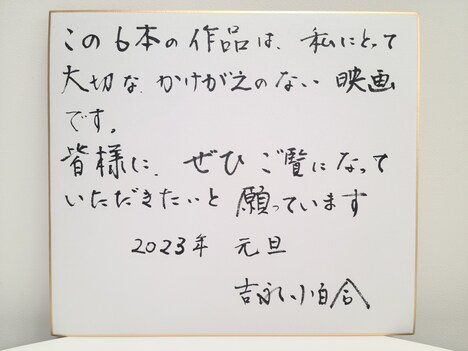 この6本の作品は、私にとって
大切な、かけがえのない 映画
です。
皆様に、ぜひ ご覧になって
いただきたいと 願っています
2023年 元旦
吉永小百合